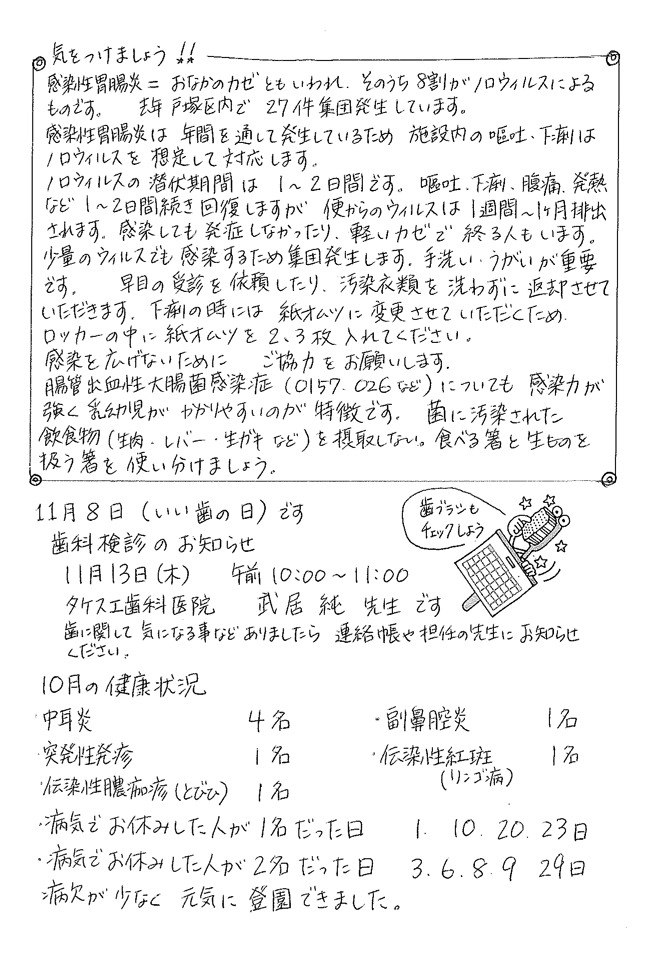 気をつけましょう!!
感染性胃腸炎= おなかのカゼともいわれ、そのうち8割がノロウィルスによる
ものです。 昨年 戸塚区内で 27件集団発生しています。
感染性胃腸炎は 年間を通して発生しているため 施設内の嘔吐、下痢は
ノロウィルスを想定して対応します。
ノロウィルスの潜伏期間は 1〜2日間です。嘔吐、下痢、腹痛、発熱
など 1〜2日間続き回復しますが 便からのウィルスは1週間〜1ヶ月排出
されます。感染しても発症しなかったり、軽いカゼで 終る人もいます。
少量のウィルスでも感染するため集団発生します。手洗い・うがいが重要
です。 早目の受診を依頼したり、汚染衣類を洗わずに返却させて
いただきます。下痢の時には 紙オムツに変更させていただくため
ロッカーの中に紙オムツを2、3枚入れてください。
感染を広げないために ご協力をお願いします。
腸管出血性大腸菌感染症(O157.O26など)についても 感染力が
強く乳幼児が かかりやすいのが特徴です。 菌に汚染された
飲食物(生肉・レバー・生ガキなど)を摂取しない。食べる箸と生ものを
扱う箸を使い分けましょう。
11月8日(いい歯の日)です
歯ブラシも
チェックしよう
歯科検診のお知らせ
11月13日(木) 午前10:00〜11:00
タケスエ歯科医院 武居 純 先生です
歯に関して気になる事などありましたら 連絡帳や担任の先生にお知らせ
ください。
10月の健康状況
・中耳炎 4名 ・副鼻腔炎 1名
・突発性発疹 1名 ・伝染性紅斑 1名
(リンゴ病)
・伝染性膿痂疹(とびひ) 1名
・病気でお休みした人が1名だった日 1. 10. 20. 23日
・病気でお休みした人が2名だった日 3. 6. 8. 9 29日
病欠が少なく 元気に登園できました。